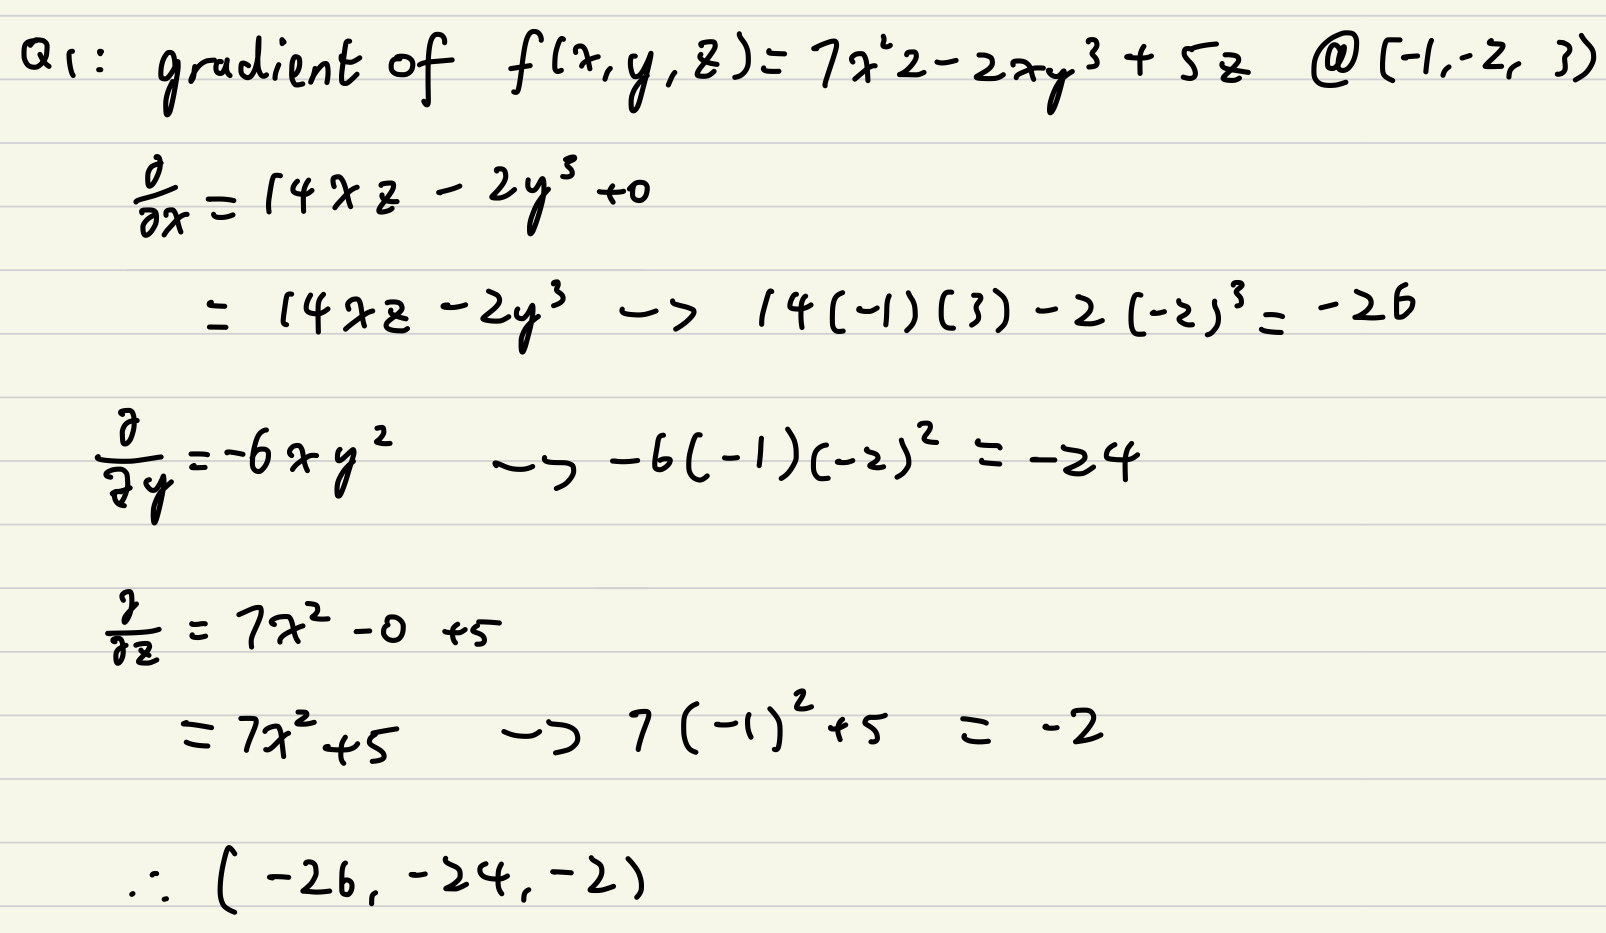 Q1: gradient of f(x, y, z) = 7x²2 - 2xy³ + 5z @ (-1, -2, 3)
∂/∂x = 14xz - 2y³ +0
= 14xz - 2y³ -> 14(-1)(3) - 2(-2)³ = -26
∂/∂y = -6xy² -> -6(-1)(-2)² = -24
∂/∂z = 7x² - 0 +5
= 7x² +5 -> 7(-1)² +5 = -2
∴ (-26, -24, -2)